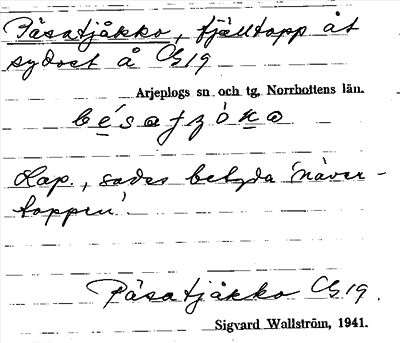 Påsatjåkko, fjälltopp åt
sydost å CG 19
Arjeplogs sn och tg, Norrbottens län.
Lap., sades betyda 'näver-
toppen'.
Påsatjåkko CG 19.
Sigvard Wallström, 1941.